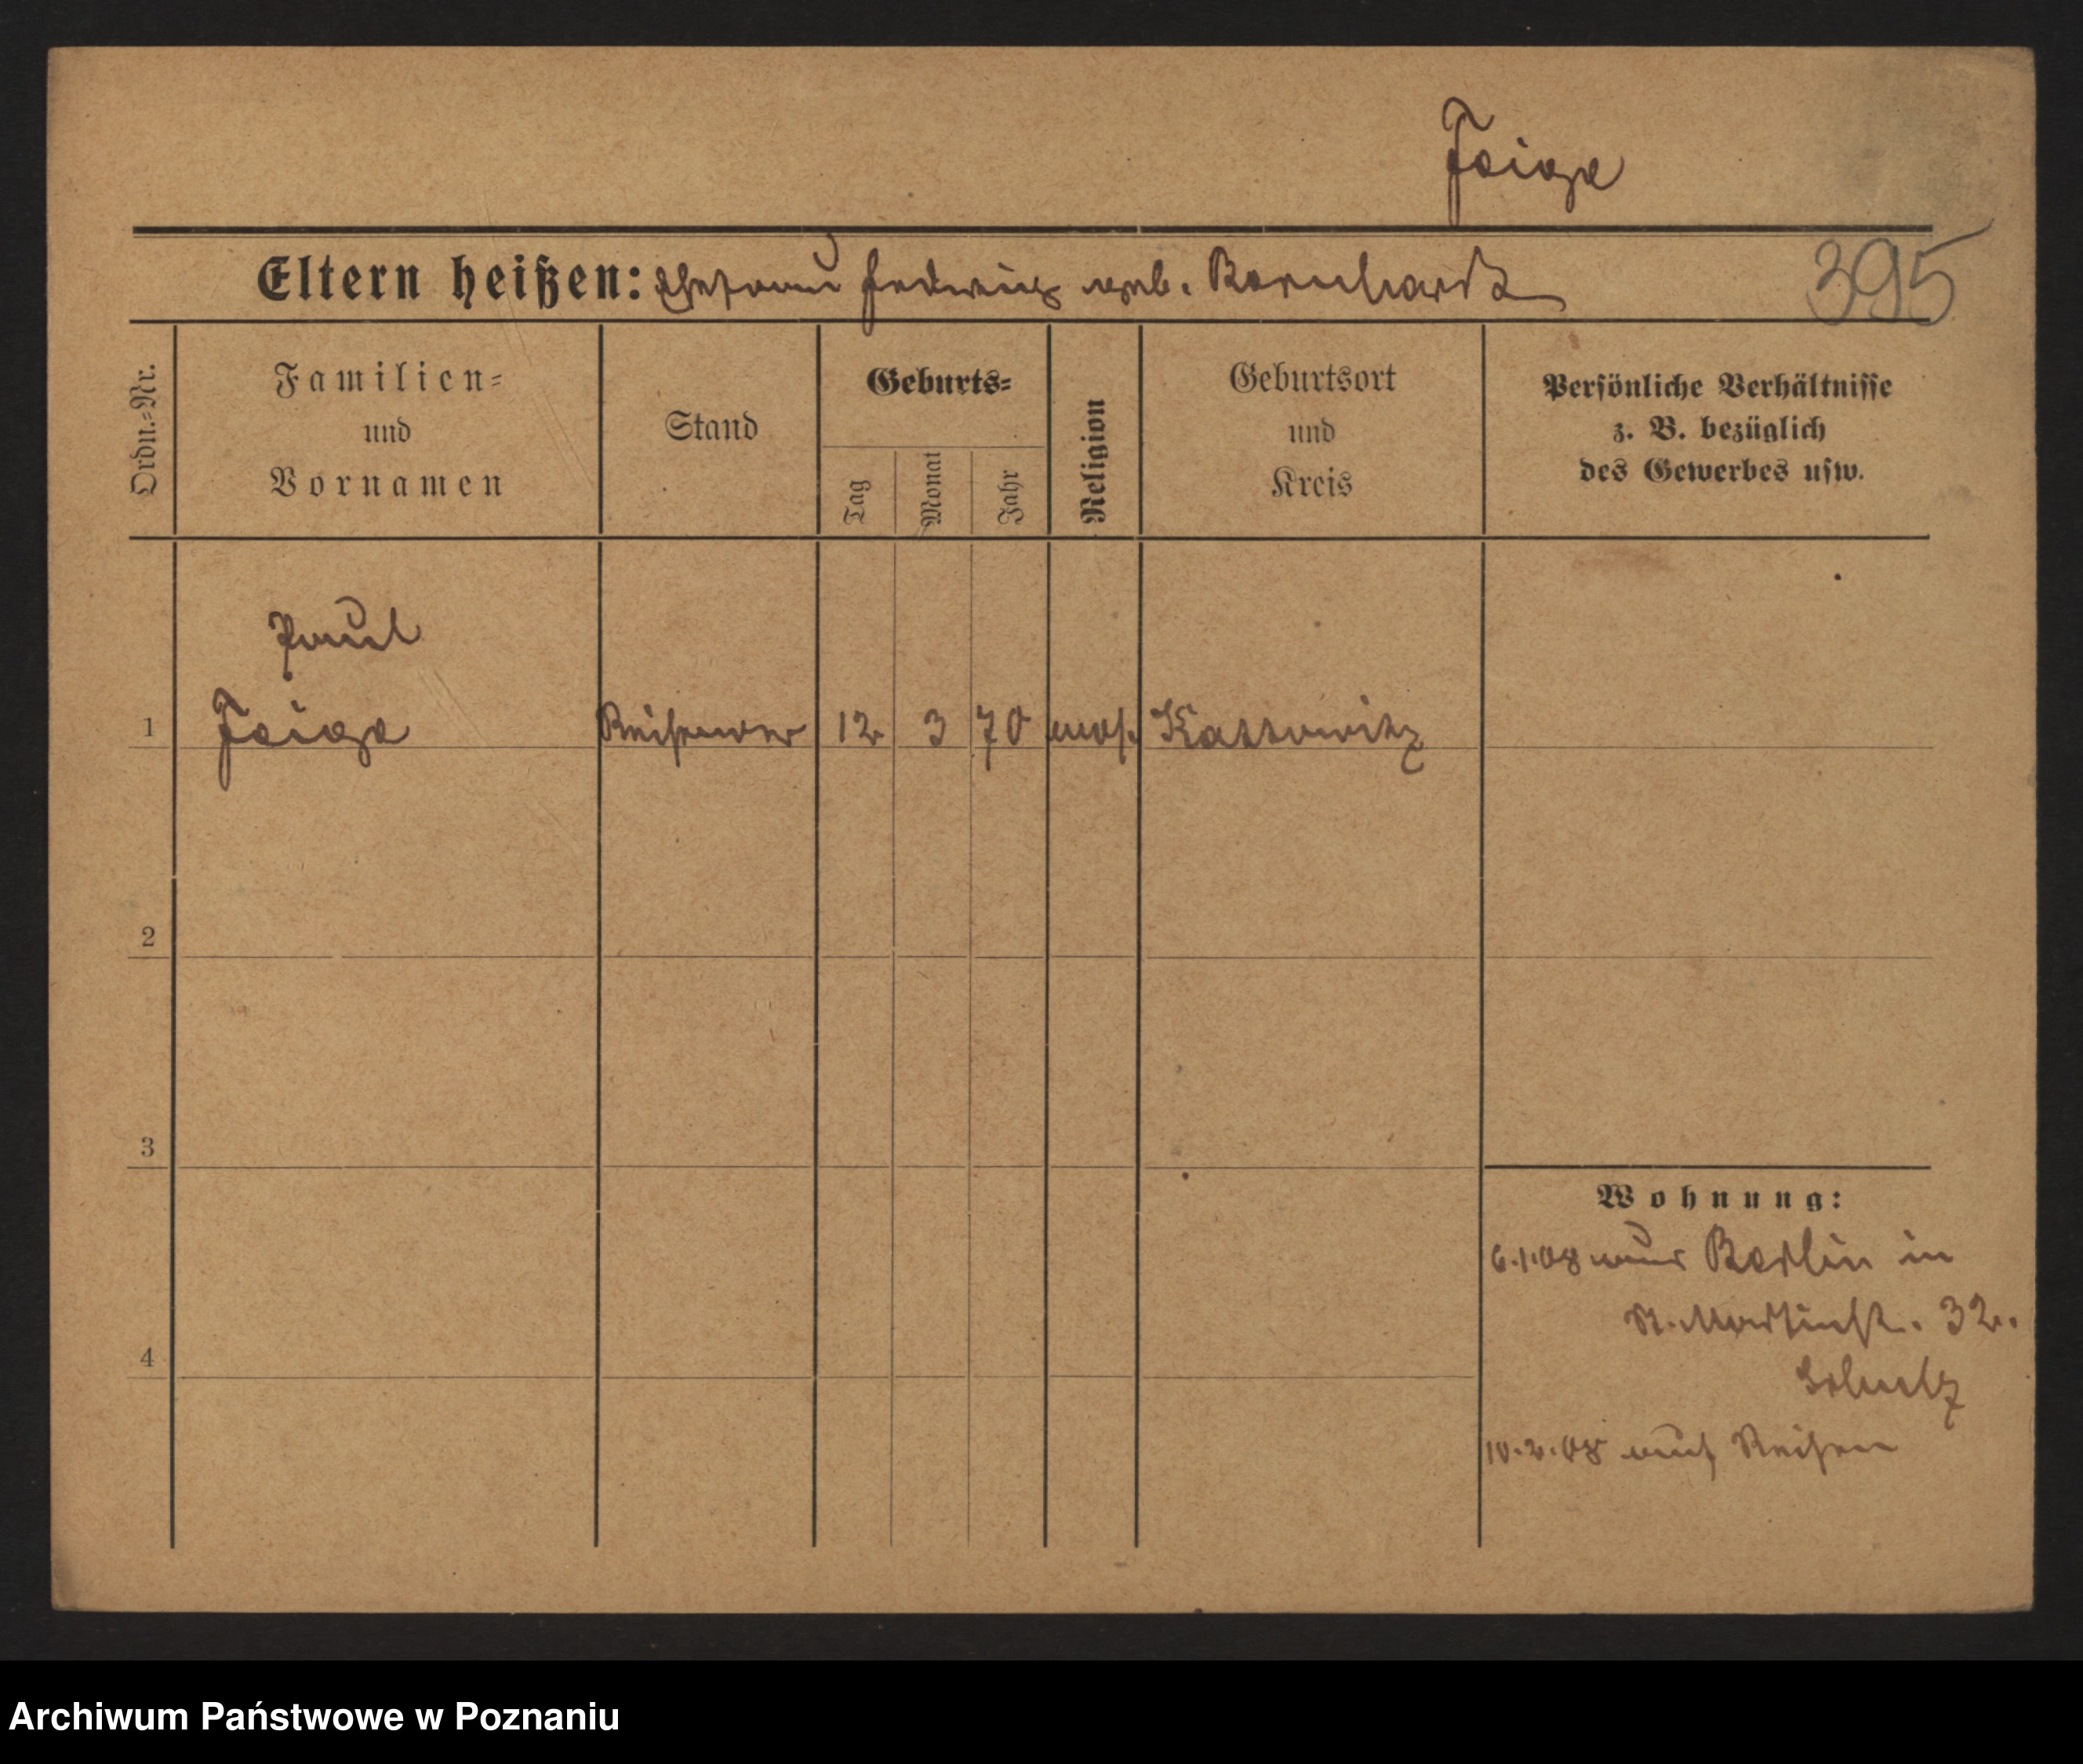 Feige
Eltern heißen: Ehefrau Hedwig geb. Bernhardt
395
Ordn.-Nr.
Familien-
und
Vornamen
Stand
Geburts-
Tag
Monat
Jahr
Religion
Geburtsort
und
Kreis
Persönliche Verhältnisse
z. B. bezüglich
des Gewerbes usw.
Paul
1 Feige Reisender 12 3 70 mos. Kattowitz
2
3
4
Wohnung:
6.1.08 aus Berlin in
St. Martinstr. 32.
Scholz
10.2.08 auf Reisen
Archiwum Państwowe w Poznaniu